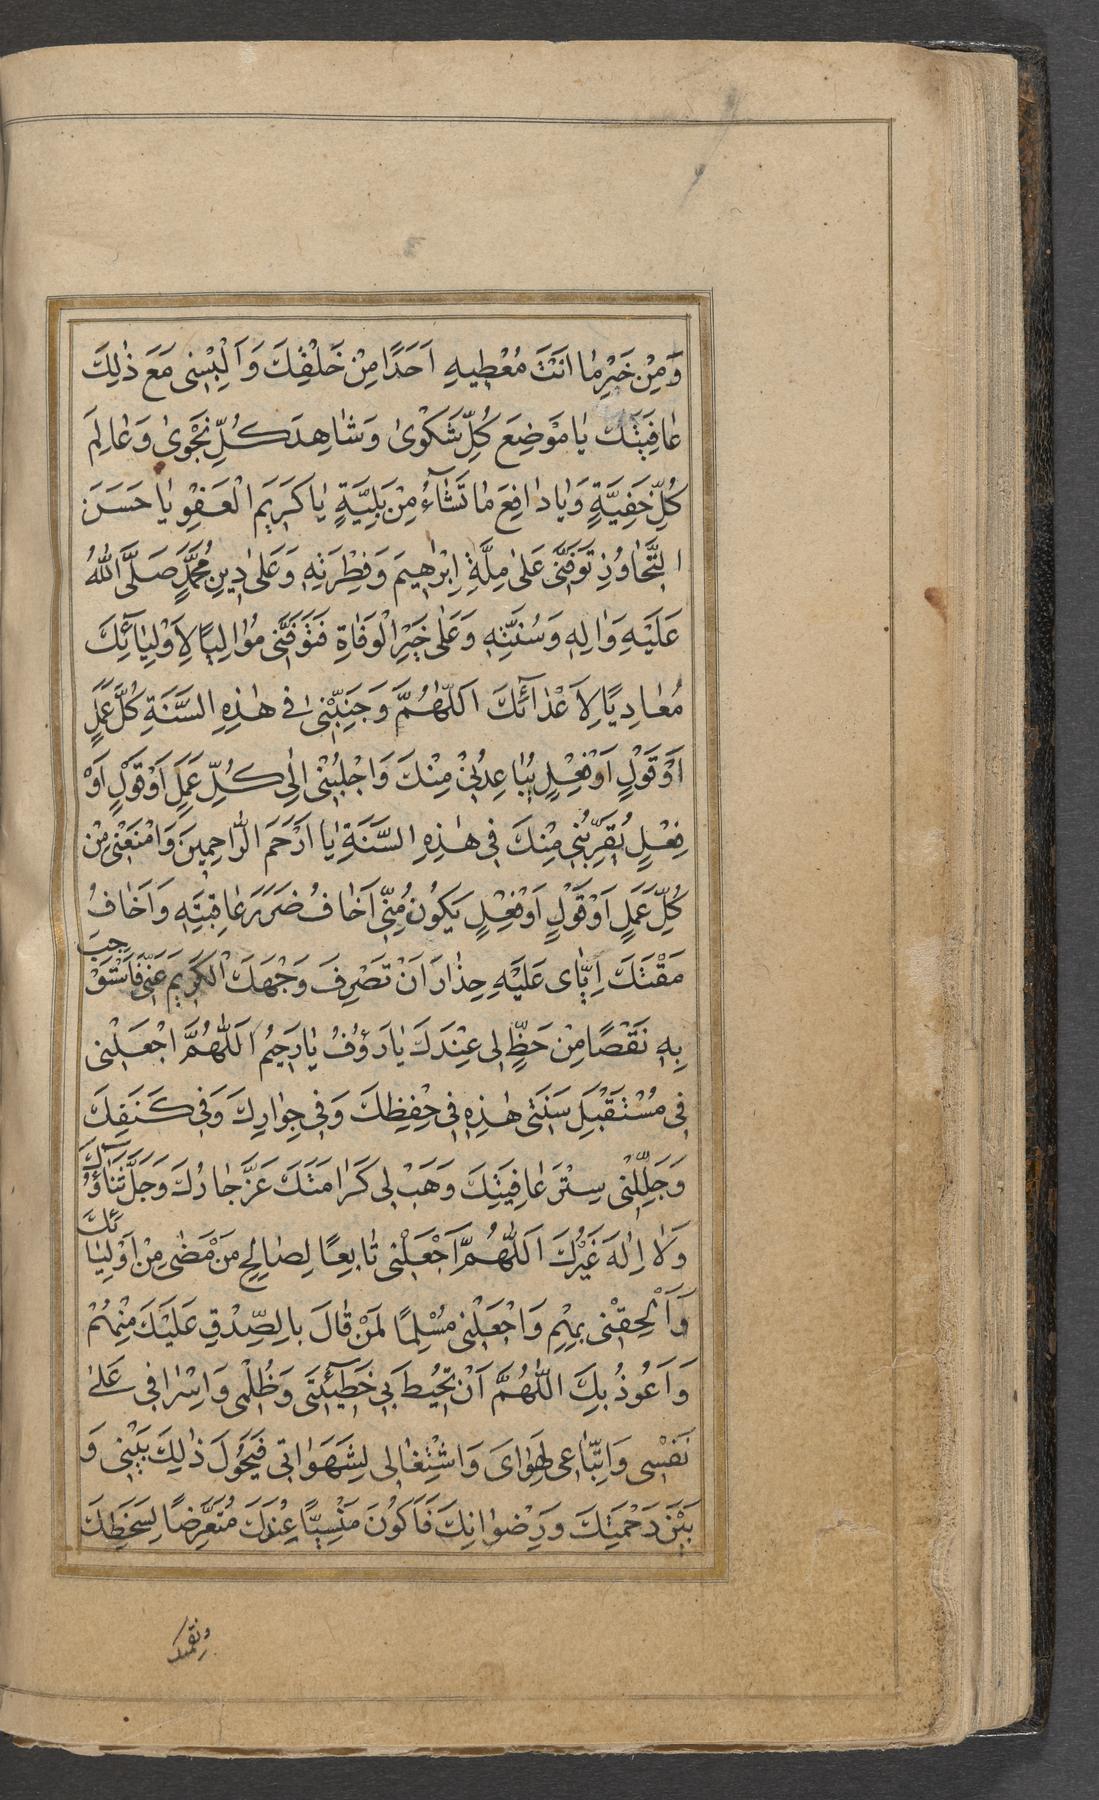 وَمِنْ خَيْرِ مٰا اَنْتَ مُعْطِيهِ اَحَدًا مِنْ خَلْقِكَ وَاَلْبِسْنى مَعَ ذٰلِكَ
عٰافِيَتَكَ يٰا مَوْضِعَ كُلِّ شَكْوىٰ وَشٰاهِدَ كُلِّ نَجْوىٰ وَعٰالِمَ
كُلِّ خَفِيَّةٍ وَيٰا دٰافِعَ مٰا تَشٰآءُ مِنْ بَلِيَّةٍ يٰا كَرَيمَ الْعَفْوِ يٰا حَسَنَ
التَّجٰاوُزِ تَوَفَّنى عَلىٰ مِلَّةِ اِبْرٰهيمَ وَفِطْرَتِهِ وَعَلىٰ دِينِ مُحَمَّدٍ صَلَّى اللّٰهُ
عَلَيْهِ وَاٰلِهِ وَسُنَّتِهِ وَعَلىٰ خَيْرِ الْوَفٰاةِ فَتَوَفَّنى مُوٰالِيًا لِاَوْلِيٰائِكَ
مُعٰادِيًا لِاَعْدٰائِكَ اَللّٰهُمَّ وَجَنِّبْنى فى هٰذِهِ السَّنَةِ كُلَّ عَمَلٍ
اَوْ قَوْلٍ اَوْ فِعْلٍ يُبٰاعِدُنى مِنْكَ وَاجْلِبْنى اِلىٰ كُلِّ عَمَلٍ اَوْ قَوْلٍ اَوْ
فِعْلٍ يُقَرِّبُنى مِنْكَ فى هٰذِهِ السَّنَةِ يٰا اَرْحَمَ الرّٰاحِمِينَ وَامْنَعْنى مِنْ
كُلِّ عَمَلٍ اَوْ قَوْلٍ اَوْ فِعْلٍ يَكُونُ مِنّى اَخٰافُ ضَرَرَ عٰاقِبَتِهِ وَاَخٰافُ
مَقْتَكَ اِيّٰاىَ عَلَيْهِ حِذٰارَ اَنْ تَصْرِفَ وَجْهَكَ الْكَرِيمَ عَنّى فَاَسْتَوْجِبَ
بِهِ نَقْصًا مِنْ حَظٍّ لى عِنْدَكَ يٰا رَؤُفُ يٰا رَحِيمُ اَللّٰهُمَّ اجْعَلْنى
فى مُسْتَقْبَلِ سَنَتى هٰذِهِ فى حِفْظِكَ وَفى جِوٰارِكَ وَفى كَنَفِكَ
وَجَلِّلْنى سِتْرَ عٰافِيَتِكَ وَهَبْ لى كَرٰامَتَكَ عَزَّ جٰارُكَ وَجَلَّ ثَنٰاؤُكَ
وَلٰا اِلٰهَ غَيْرُكَ اَللّٰهُمَّ اجْعَلْنى تٰابِعًا لِصٰالِحِ مَنْ مَضىٰ مِنْ اَوْلِيٰائِكَ
وَاَلْحِقْنى بِهِمْ وَاجْعَلْنى مُسْلِمًا لِمَنْ قٰالَ بِالصِّدْقِ عَلَيْكَ مِنْهُمْ
وَاَعُوذُ بِكَ اللّٰهُمَّ اَنْ تُحِيطَ بى خَطٓيئَتى وَظُلْمى وَاِسْرٰافى عَلىٰ
نَفْسى وَاتِّبٰاعى لِهَوٰاىَ وَاشْتِغٰالى لِشَهَوٰاتى فَيَحُولَ ذٰلِكَ بَيْنى وَ
بَيْنَ رَحْمَتِكَ وَرِضْوٰانِكَ فَاَكُونَ مَنْسِيًّا عِنْدَكَ مُتَعَرِّضًا لِسَخَطِكَ
ونقمتك